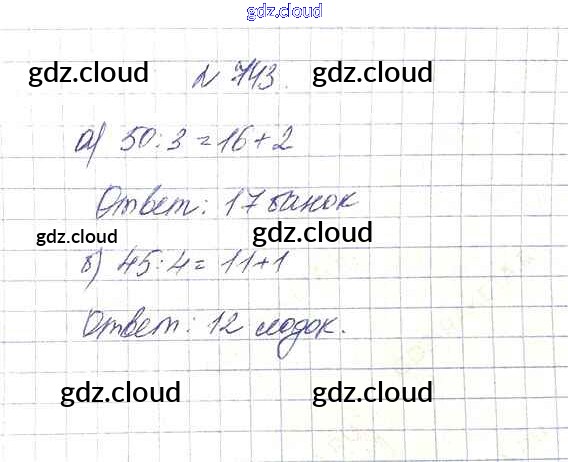 gdz.cloud
gdz.cloud № 743. gdz.cloud
а) 50:3=16+2
Ответ: 17 банок
gdz.cloud gdz.cloud
б) 45:4= 11+1
Ответ: 12 лодок.
gdz.cloud gdz.cloud